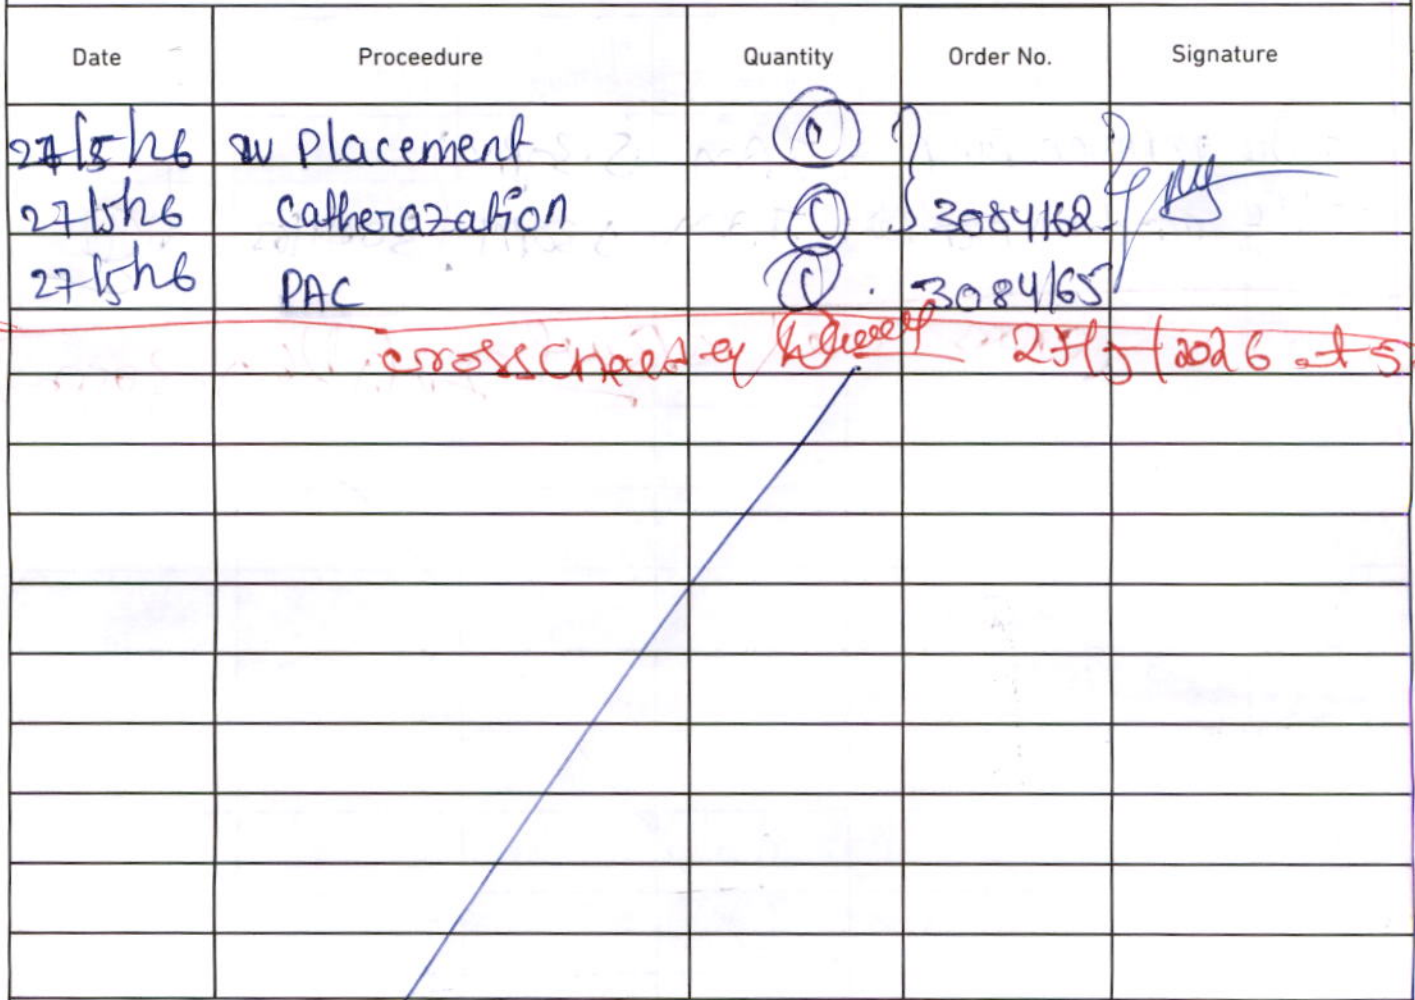 Date Proceedure Quantity Order No. Signature
27/5/26 IV Placement 1
27/5/26 Catherazation 1 3084162
27/5/26 PAC 1 3084165
cross checked by 27/5/2026 at 5